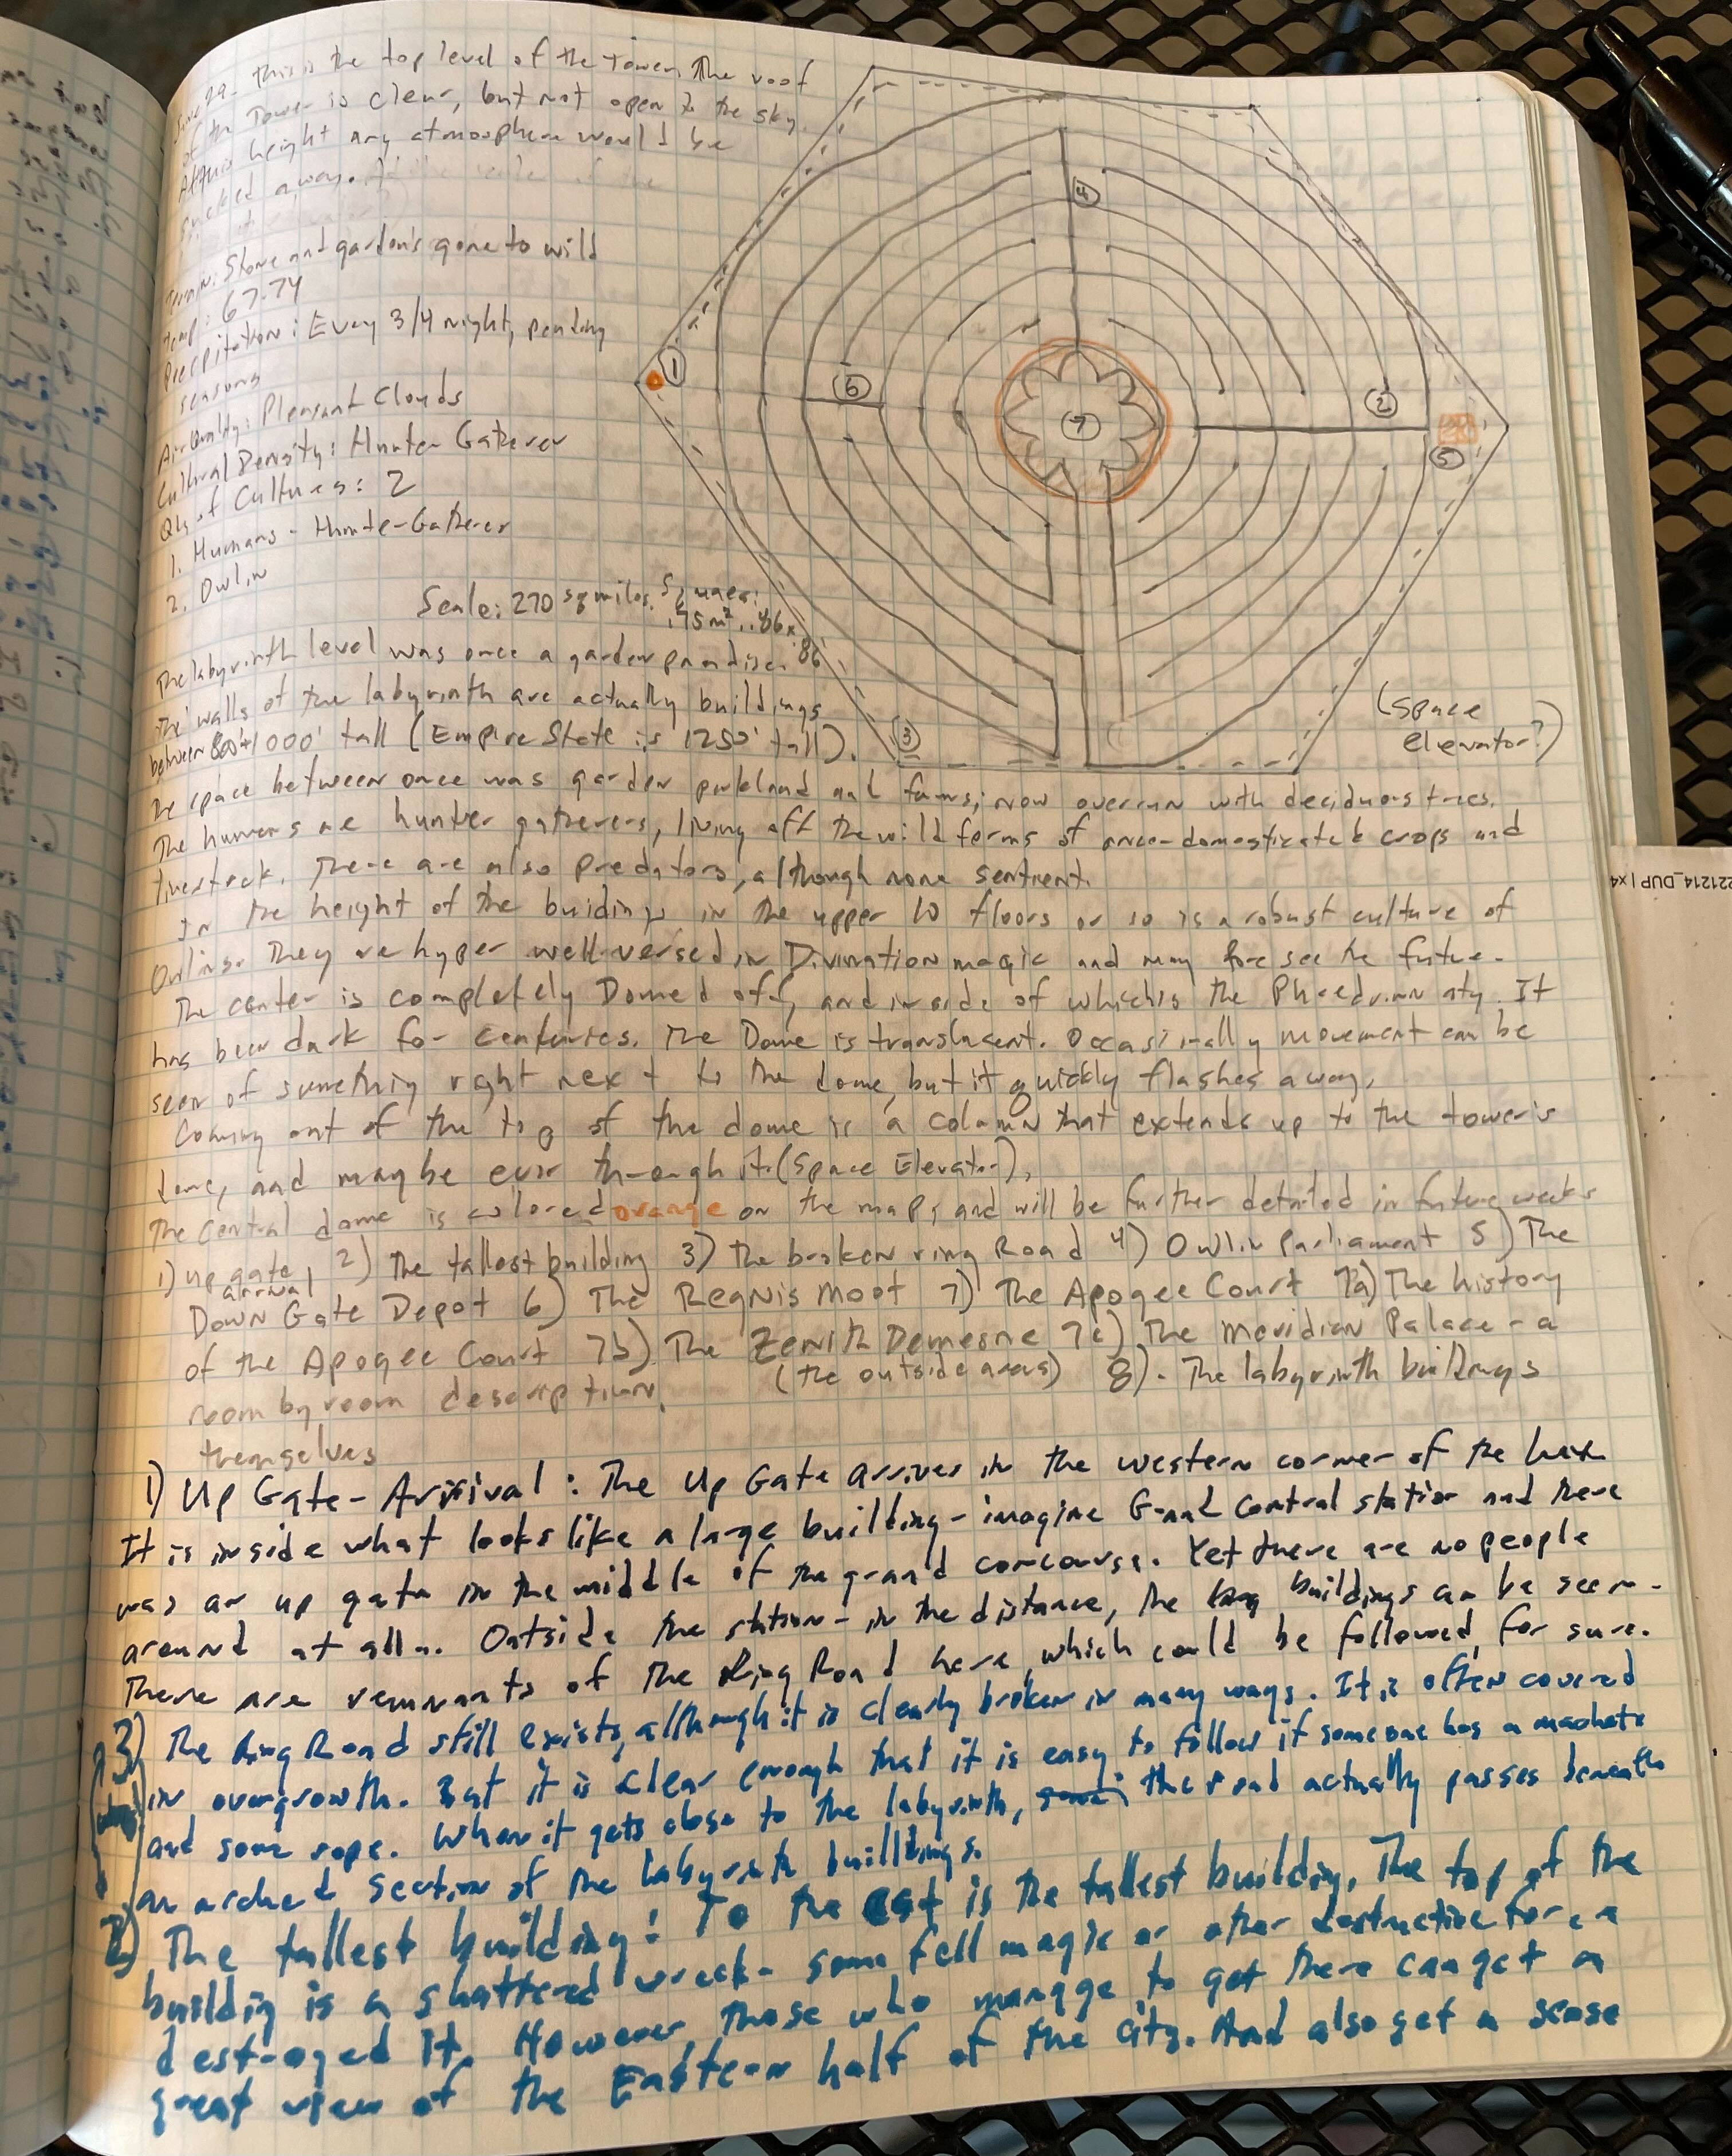 June 29 - this is the top level of the Tower. The roof
of the Tower is clear, but not open to the sky.
At this height any atmosphere would be
sucked away.
Terrain: Stone and garden's gone to wild
Temp: 67-74
Precipitation: Every 3/4 night, pending
seasons
Air Quality: Pleasant Clouds
Cultural Density: Hunter Gatherer
Qty of Cultures: 2
1. Humans - Hunter-Gatherer
2. Owlin
Scale: 270 sq miles. Squares:
.75m², .86x
.86
The labyrinth level was once a garden paradise.
The walls of the labyrinth are actually buildings
between 800'+1000' tall (Empire State is 1250' tall).
The space between once was garden parkland and farms; now overrun with deciduous trees.
The humans are hunter gatherers, living off the wild forms of once-domesticated crops and
livestock. There are also predators, although none sentient.
In the height of the buidings in the upper 10 floors or so is a robust culture of
Owlins. They are hyper well-versed in Divination magic and may foresee the future.
The center is completely Domed off, and inside of which is the Phaedrian city. It
has been dark for centuries. The Dome is translucent. Occasionally movement can be
seen of something right next to the dome, but it quickly flashes away.
Coming out of the top of the dome is a column that extends up to the tower's
dome, and maybe even through it. (Space Elevator).
The central dome is colored orange on the map, and will be further detailed in future weeks
1) Up gate arrival 2) The tallest building 3) The broken ring Road 4) Owlin Parliament 5) The
Down Gate Depot 6) The Regnis Moot 7) The Apogee Court 7a) The history
of the Apogee Court 7b) The Zenith Demesne 7c) The Meridian Palace - a
(the outside areas) 8). The labyrinth buildings
room by room description
themselves
1) Up Gate - Arrival: The Up Gate arrives in the western corner of the hex
It is inside what looks like a large building - imagine Grand Central station and there
was an up gate in the middle of the grand concourse. Yet there are no people
around at all. Outside the station - in the distance, the buildings can be seen.
There are remnants of the Ring Road here, which could be followed, for sure.
3) The Ring Road still exists, although it is clearly broken in many ways. It is often covered
in overgrowth. But it is clear enough that it is easy to follow if someone has a machete
and some rope. When it gets close to the labyrinth, the road actually passes beneath
an arched section of the labyrinth buildings.
2) The tallest building: To the East is the tallest building. The top of the
building is a shattered wreck - some fell magic or other destructive force
destroyed it. However, those who manage to get there can get a
great view of the Eastern half of the city. And also get a sense
1
4
6
2
7
5
3
(Space
elevator?)
221214_DUP | x4